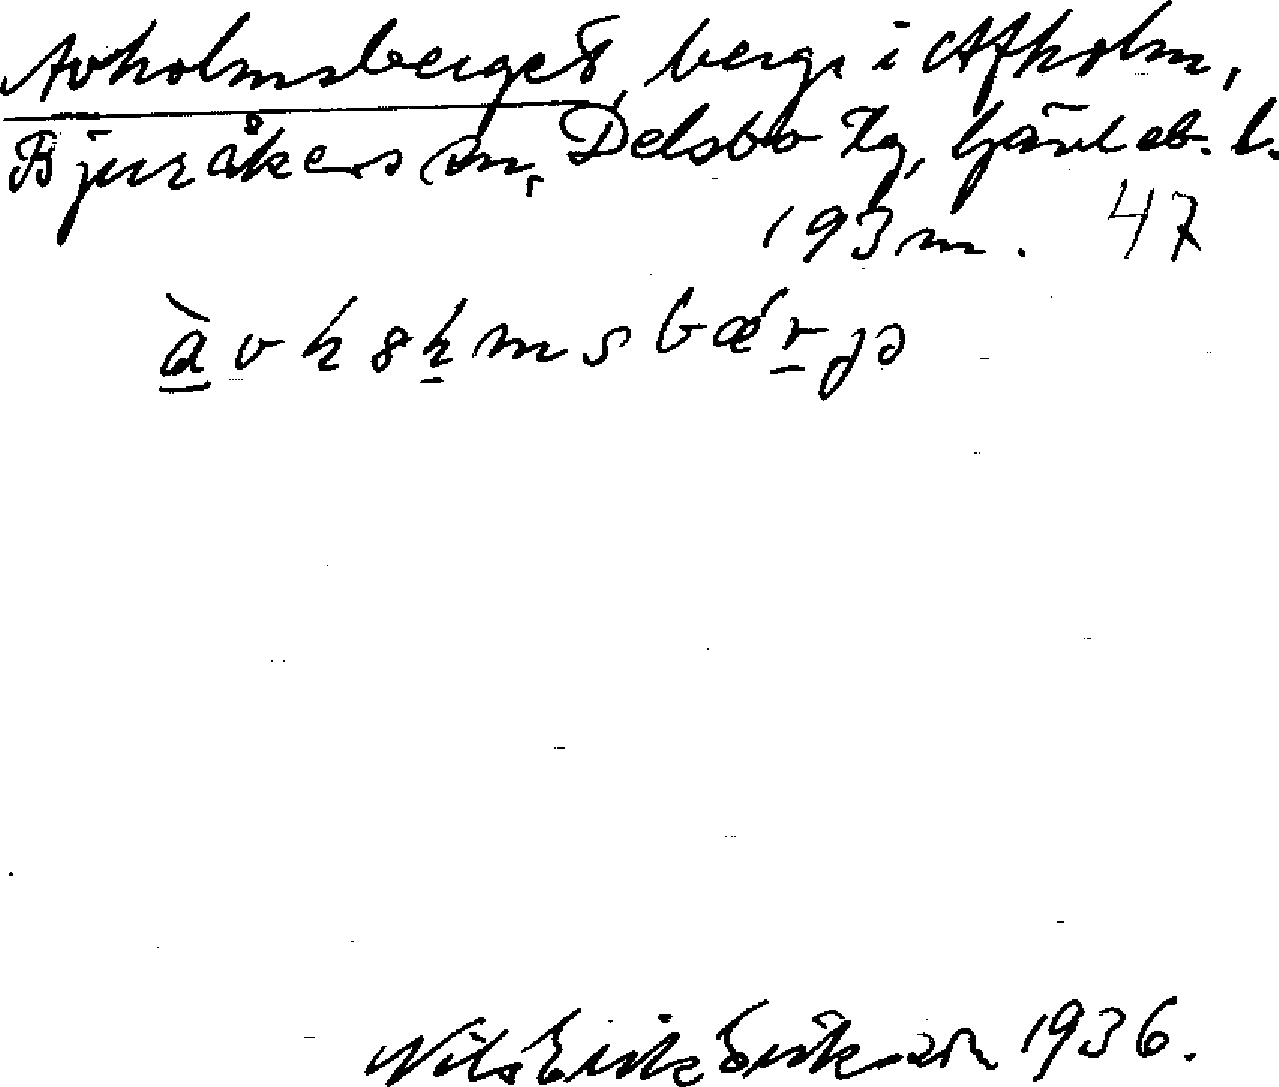 Avholmsberget, berg i Afholm,
Bjuråkers sn, Delsbo tg, Gävleb. l.
193 m. 47
Nils Erik Eriksson 1936.